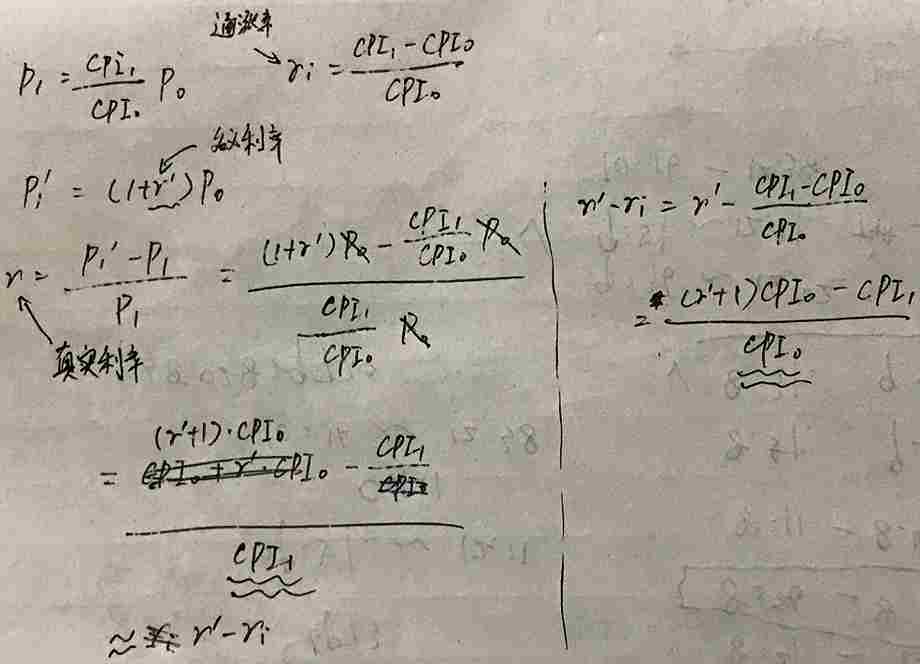 通涨率
P₁ = CPI₁/CPI₀ P₀
rᵢ = (CPI₁ - CPI₀)/CPI₀
名义利率
P₁' = (1+r')P₀
r = (P₁' - P₁)/P₁ = ((1+r')P₀ - CPI₁/CPI₀ P₀)/(CPI₁/CPI₀ P₀)
真实利率
= ((r'+1)·CPI₀ - CPI₁)/CPI₁
≈ r' - rᵢ
r' - rᵢ = r' - (CPI₁-CPI₀)/CPI₀
= ((r'+1)CPI₀ - CPI₁)/CPI₀